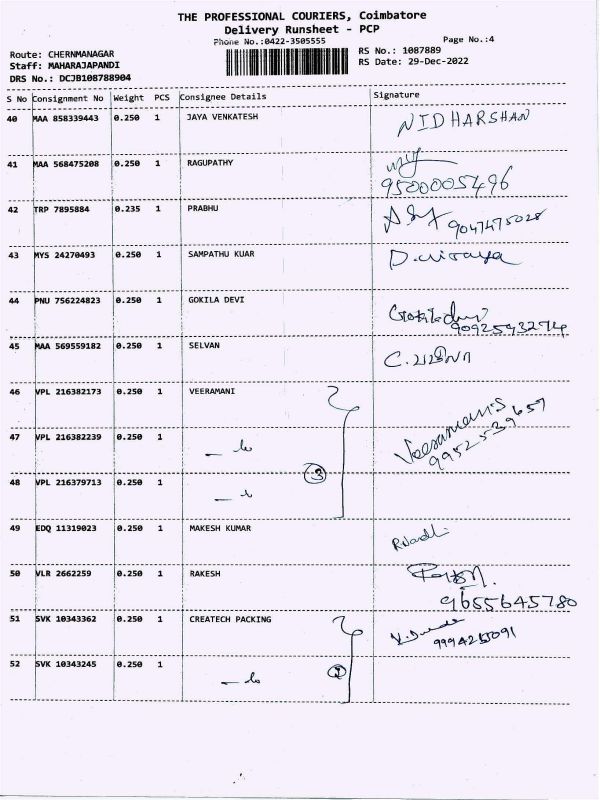 THE PROFESSIONAL COURIERS, Coimbatore
Delivery Runsheet - PCP
Phone No.:0422-3505555
Page No.:4
Route: CHERNMANAGAR
RS No.: 1087889
Staff: MAHARAJAPANDI
RS Date: 29-Dec-2022
DRS No.: DCJB108788904
S No Consignment No Weight PCS Consignee Details Signature
40 MAA 858339443 0.250 1 JAYA VENKATESH NIDHARSHAN
41 MAA 568475208 0.250 1 RAGUPATHY
9500005496
42 TRP 7895884 0.235 1 PRABHU 9047475028
43 MYS 24270493 0.250 1 SAMPATHU KUAR
44 PNU 756224823 0.250 1 GOKILA DEVI
9092593274
45 MAA 569559182 0.250 1 SELVAN
46 VPL 216382173 0.250 1 VEERAMANI Veeramani.S
9952539657
47 VPL 216382239 0.250 1
3
48 VPL 216379713 0.250 1
49 EDQ 11319023 0.250 1 MAKESH KUMAR
50 VLR 2662259 0.250 1 RAKESH
9655645780
51 SVK 10343362 0.250 1 CREATECH PACKING
52 SVK 10343245 0.250 1